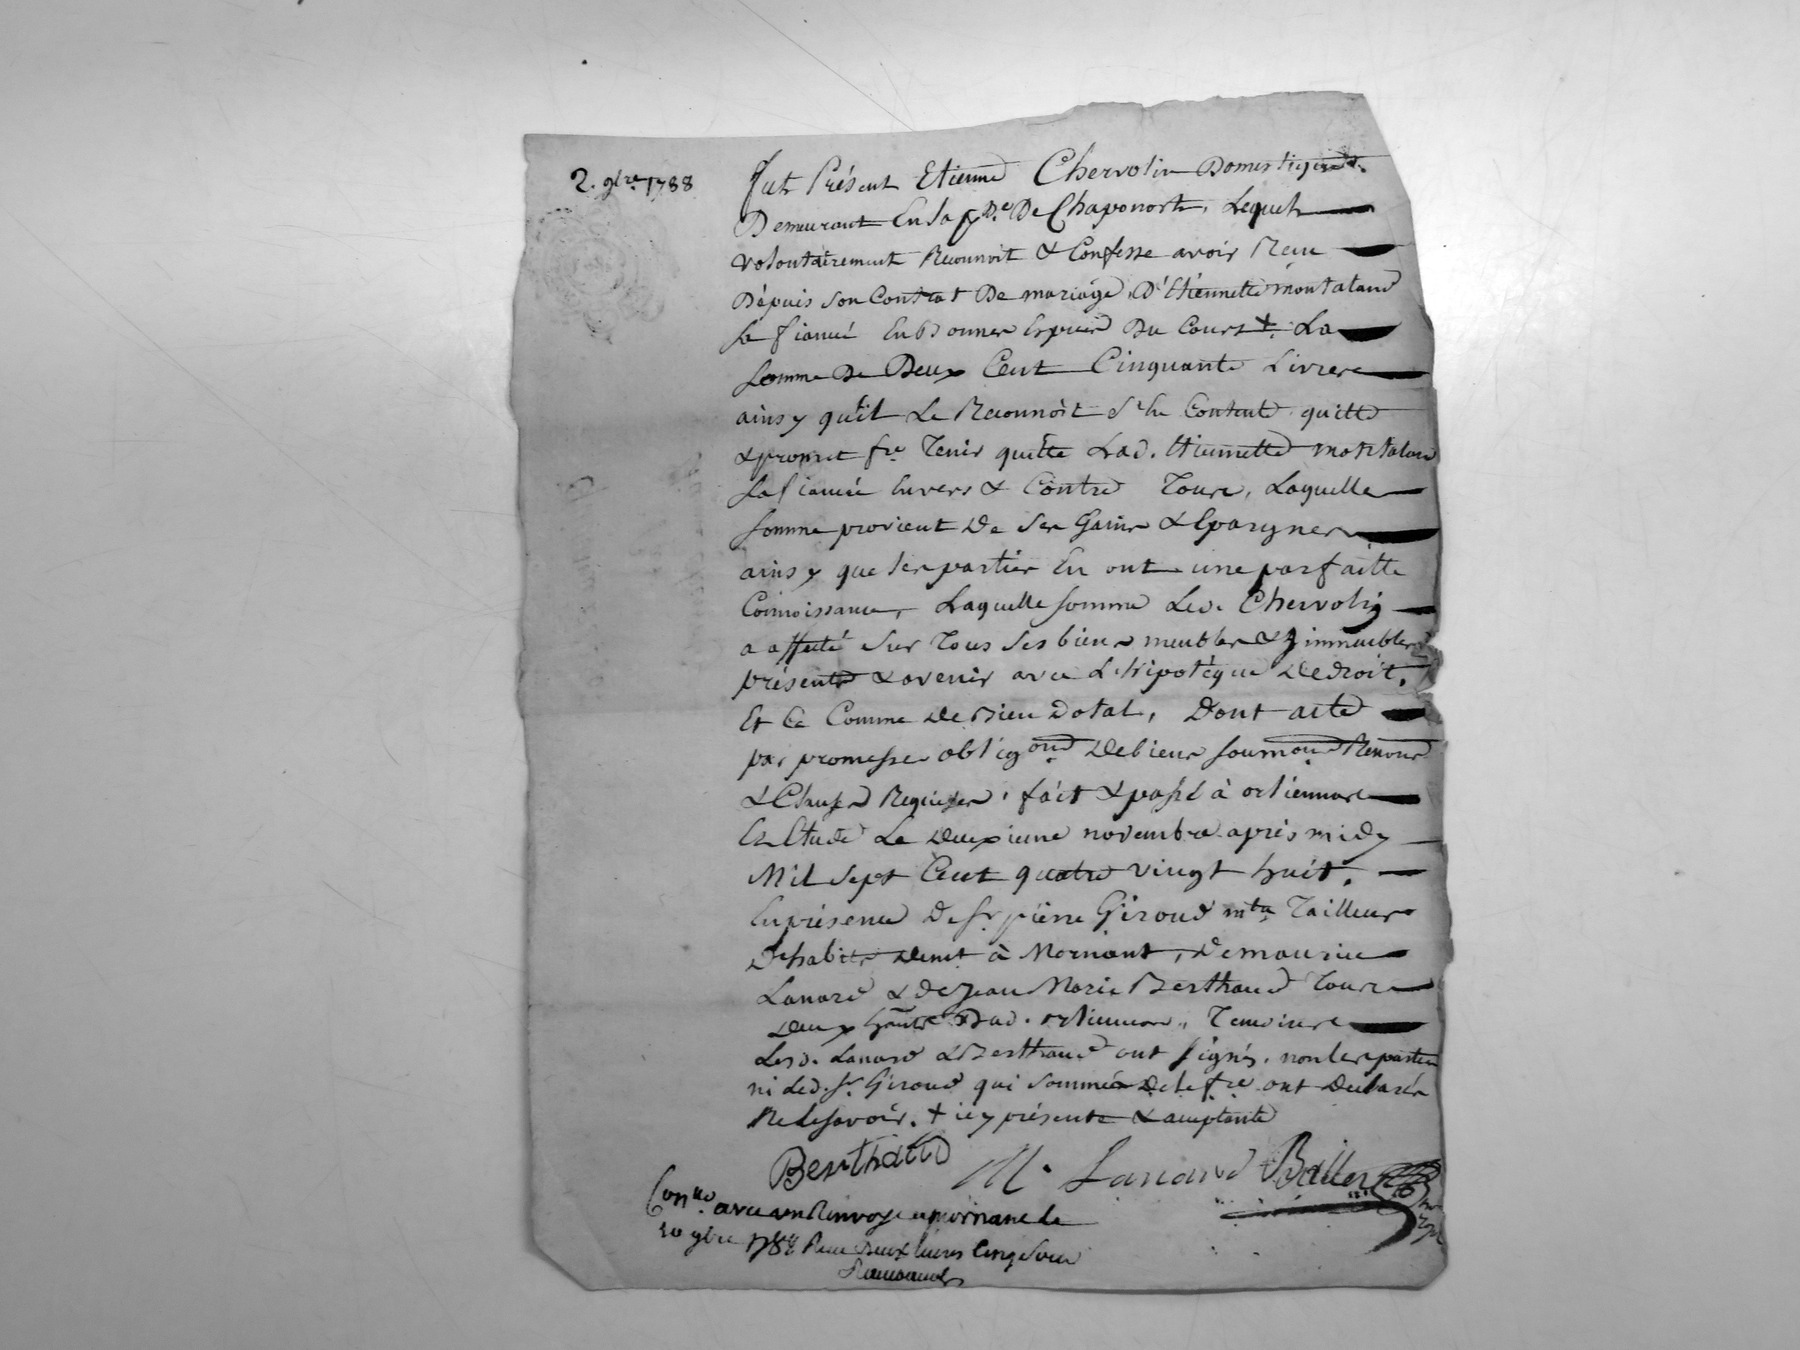 2. 9bre 1788
Fut Présent Etienne Chervolin Domestique
Demeurant En la psse De Chaponost, Lequel
volontairement Reconnoit & Confesse avoir Recu
Dépuis son Contrat De mariage, D'Etiennette montaland
sa fiancé En Bonnes Espece Du Cours + La
somme De Deux Cent Cinquante Livres
ainsy qu'il Le Reconnoit s'En Contente quitte
& promet fre Tenir quitte Lad. Etiennette montaland
sa fiancée Envers & Contre Tous, Laquelle
somme provient De ses Gains & Epargnes
ainsy que les parties En ont une parfaitte
Connoissance, Laquelle somme Led. Chervolin
a affecté sur Tous ses biens meubles & immeubles
présents & avenir avec L'hipotèque De droit.
Et Ce Comme De Bien Dotal, Dont acte
par promesse obligons De biens soumons Renons
& Clauses Requises, fait & passé à orliennas
En Etude Le Deuxieme novembre après midy
Mil sept Cent quatre vingt huit.
En présence De Sr pierre Giroud mtre Tailleur
D'habits Demt à Mornant, De maurice
Lanard & De Jean Marie Berthaud Tous
Deux Dud. orliennas, Temoins
Lesd. Lanard & Berthaud ont signés, non les parties
ni Led. Sr Giroud qui sommés De le fre ont Declarés
Ne le savoir. + icy présente & acceptante
Berthaud M. Lanard Ballen
Conllé avec un Renvoye a mornant le
10 9bre 1788 Recu Deux livres Cinq sous